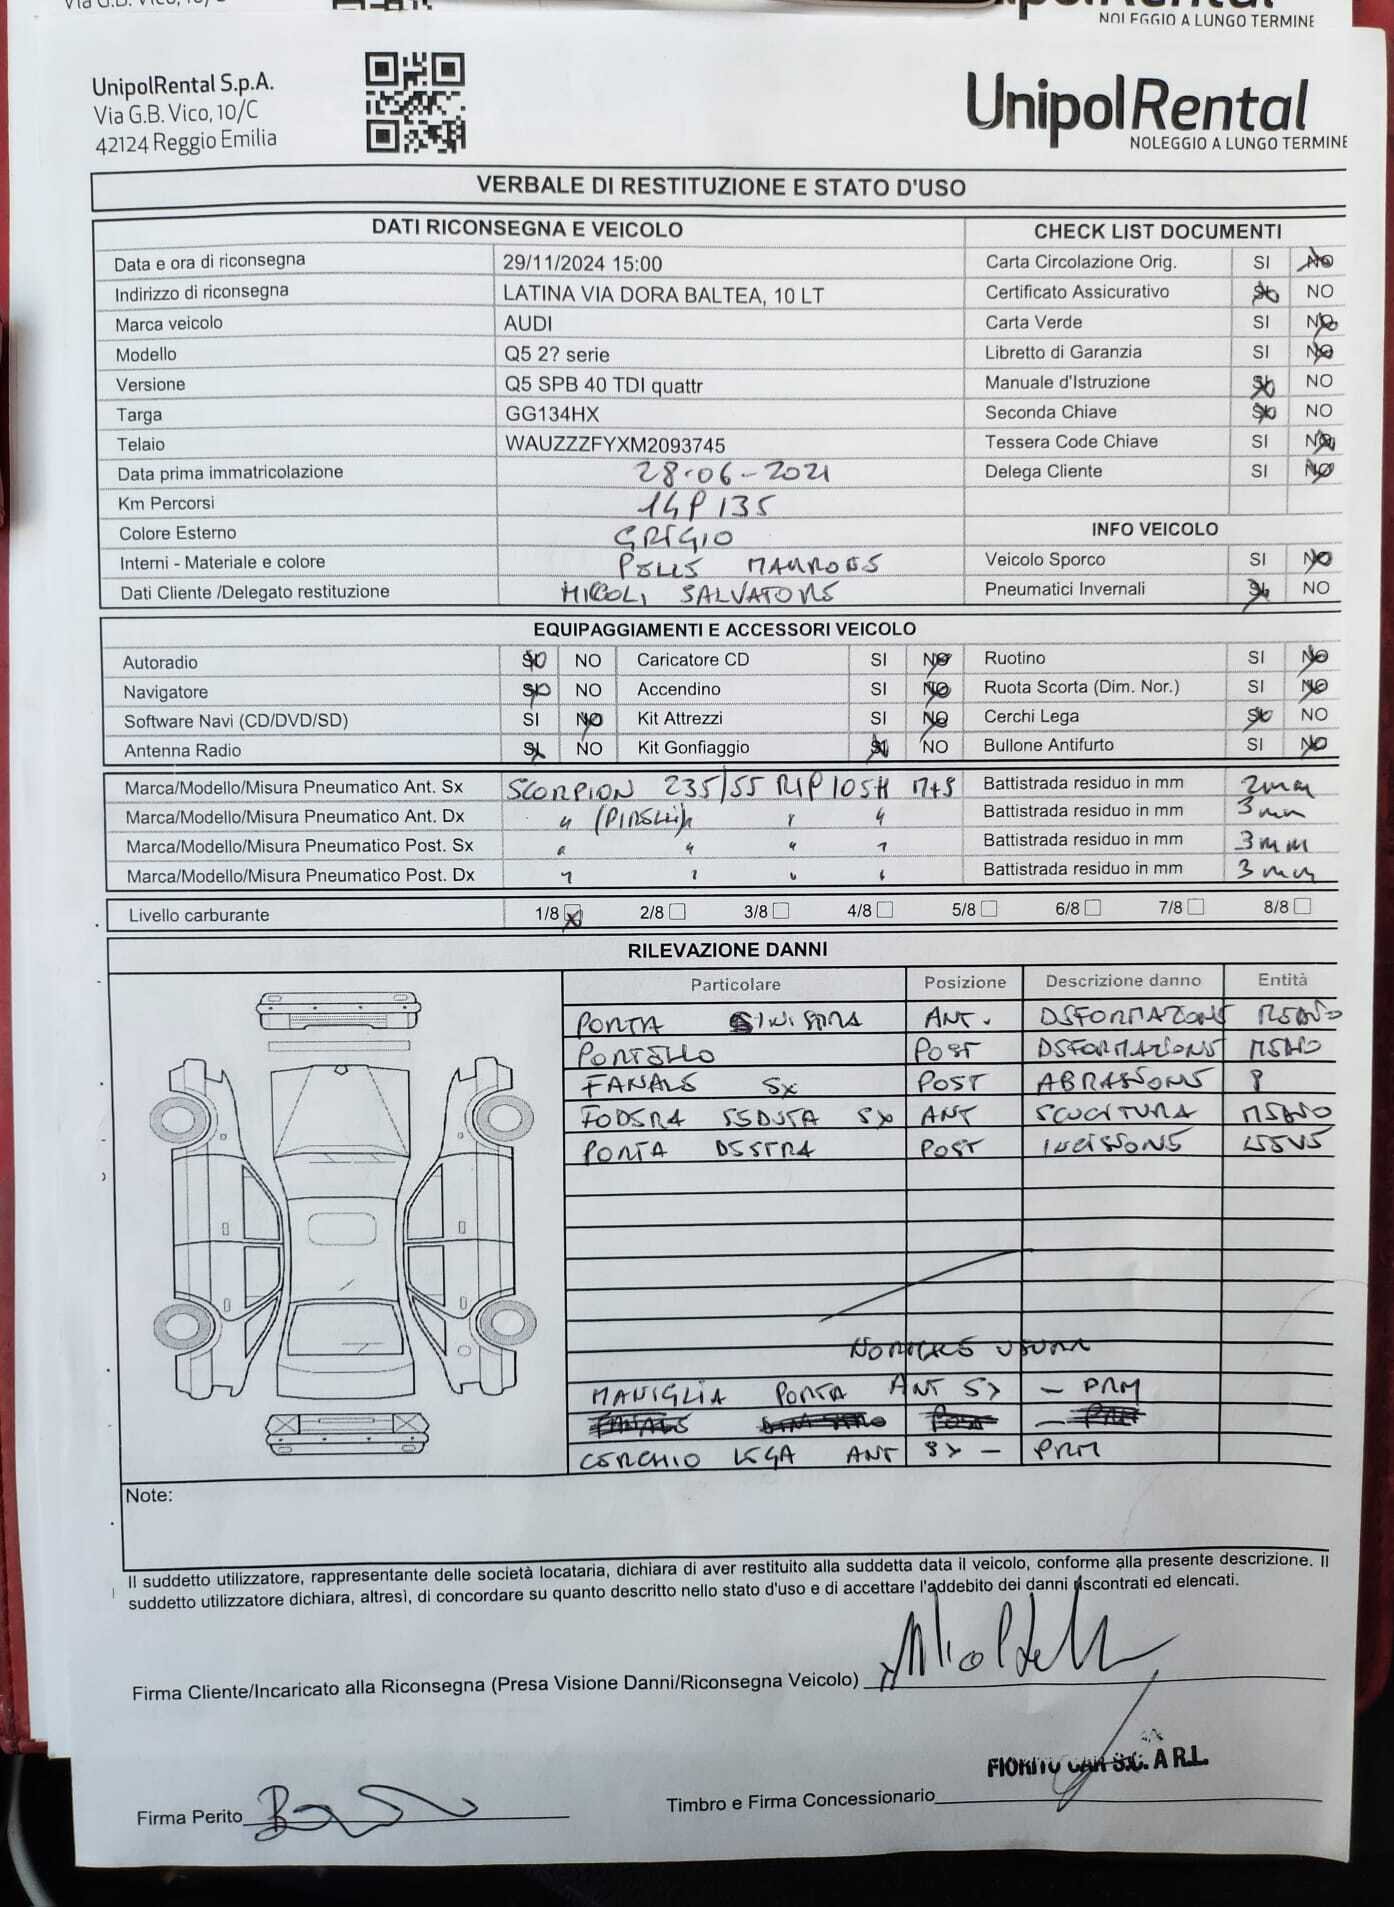 NOLEGGIO A LUNGO TERMINE
UnipolRental S.p.A.
Via G.B. Vico, 10/C
42124 Reggio Emilia
UnipolRental
NOLEGGIO A LUNGO TERMINE
VERBALE DI RESTITUZIONE E STATO D'USO
DATI RICONSEGNA E VEICOLO CHECK LIST DOCUMENTI
Data e ora di riconsegna 29/11/2024 15:00 Carta Circolazione Orig. SI NO
Indirizzo di riconsegna LATINA VIA DORA BALTEA, 10 LT Certificato Assicurativo SI NO
Marca veicolo AUDI Carta Verde SI NO
Modello Q5 2? serie Libretto di Garanzia SI NO
Versione Q5 SPB 40 TDI quattr Manuale d'Istruzione SI NO
Targa GG134HX Seconda Chiave SI NO
Telaio WAUZZZFYXM2093745 Tessera Code Chiave SI NO
Data prima immatricolazione 28-06-2021 Delega Cliente SI NO
Km Percorsi
Colore Esterno GRIGIO INFO VEICOLO
Interni - Materiale e colore PELLE MARRONE Veicolo Sporco SI NO
Dati Cliente /Delegato restituzione MICOLI SALVATORE Pneumatici Invernali SI NO
EQUIPAGGIAMENTI E ACCESSORI VEICOLO
Autoradio SI NO Caricatore CD SI NO Ruotino SI NO
Navigatore SI NO Accendino SI NO Ruota Scorta (Dim. Nor.) SI NO
Software Navi (CD/DVD/SD) SI NO Kit Attrezzi SI NO Cerchi Lega SI NO
Antenna Radio SI NO Kit Gonfiaggio SI NO Bullone Antifurto SI NO
Marca/Modello/Misura Pneumatico Ant. Sx SCORPION 235/55 R19 105H M+S Battistrada residuo in mm 2mm
Marca/Modello/Misura Pneumatico Ant. Dx " (PIRELLI) " " " Battistrada residuo in mm 3mm
Marca/Modello/Misura Pneumatico Post. Sx " " " " Battistrada residuo in mm 3mm
Marca/Modello/Misura Pneumatico Post. Dx " " " " Battistrada residuo in mm 3mm
Livello carburante 1/8 2/8 3/8 4/8 5/8 6/8 7/8 8/8
RILEVAZIONE DANNI
Particolare Posizione Descrizione danno Entità
PORTA SINISTRA ANT. DEFORMAZIONE MEDIO
PORTELLO POST DEFORMAZIONE MEDIO
FANALE SX POST ABRASIONE
FODERA SEDUTA SX ANT SCUCITURA MEDIO
PORTA DESTRA POST INCISSIONE LIEVE
NORMALE USURA
MANIGLIA PORTA ANT SX - PRM
CERCHIO LEGA ANT SX - PRM
Note:
Il suddetto utilizzatore, rappresentante delle società locataria, dichiara di aver restituito alla suddetta data il veicolo, conforme alla presente descrizione. Il
suddetto utilizzatore dichiara, altresì, di concordare su quanto descritto nello stato d'uso e di accettare l'addebito dei danni riscontrati ed elencati.
Firma Cliente/Incaricato alla Riconsegna (Presa Visione Danni/Riconsegna Veicolo)
FIORITO CAR S.C. A R.L.
Firma Perito Timbro e Firma Concessionario